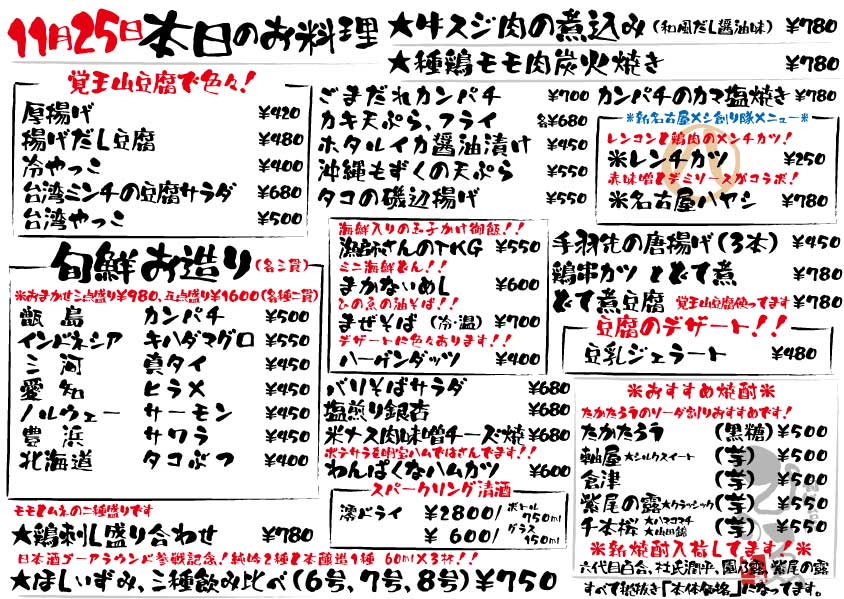 11月25日本日のお料理
★牛スジ肉の煮込み(和風だし醤油味) ¥780
★種鶏モモ肉炭火焼き ¥780
覚王山豆腐で色々!
厚揚げ ¥420
揚げだし豆腐 ¥480
冷やっこ ¥400
台湾ミンチの豆腐サラダ ¥680
台湾やっこ ¥500
ごまだれカンパチ ¥700
カキ天ぷら、フライ 各¥680
ホタルイカ醤油漬け ¥450
沖縄もずくの天ぷら ¥550
タコの磯辺揚げ ¥550
カンパチのカマ塩焼き ¥780
※新名古屋メシ創り隊メニュー※
レンコンと鶏肉のメンチカツ!
米レンチカツ ¥250
赤味噌とデミソースがコラボ!
米名古屋ハヤシ ¥780
旬鮮お造り(各三貫)
※おまかせ三点盛り¥980、五点盛り¥1600(各種二貫)
甑島 カンパチ ¥500
インドネシア キハダマグロ ¥550
三河 真タイ ¥450
愛知 ヒラメ ¥450
ノルウェー サーモン ¥450
豊浜 サワラ ¥450
北海道 タコぶつ ¥400
海鮮入りの玉子かけ御飯!!
漁師さんのTKG ¥550
ミニ海鮮どん!!
まかないめし ¥600
ひの魚の油そば!!
まぜそば (冷・温) ¥700
デザートに色々あります!!
ハーゲンダッツ ¥400
手羽先の唐揚げ(3本) ¥450
鶏串カツ とどて煮 ¥780
どて煮豆腐 覚王山豆腐使ってます ¥780
豆腐のデザート!!
豆乳ジェラート ¥480
バリそばサラダ ¥680
塩煎り銀杏 ¥680
米ナス肉味噌チーズ焼 ¥680
ポテサラを明宝ハムではさんでます!!
わんぱくなハムカツ ¥600
スパークリング清酒
澪ドライ ¥2800/ボトル750ml
¥600/グラス150ml
※おすすめ焼酎※
たかたろうのソーダ割りおすすめです!
たかたろう (黒糖) ¥500
軸屋 ★シルクスイート (芋) ¥500
倉津 (芋) ¥500
紫尾の露 ★クラッシック (芋) ¥550
千本桜 ★ハマコマチ ★山田錦 (芋) ¥550
※新焼酎入荷してます!※
六代目百合、杜氏潤平、園乃露、紫尾の露
すべて税抜き「本体価格」になってます。
モモとムネの二種盛りです
★鶏刺し盛り合わせ ¥780
日本酒ゴーアラウンド参戦記念!純吟2種と本醸造1種 60ml×3杯!!
★ほしいずみ、三種飲み比べ(6号、7号、8号)¥750